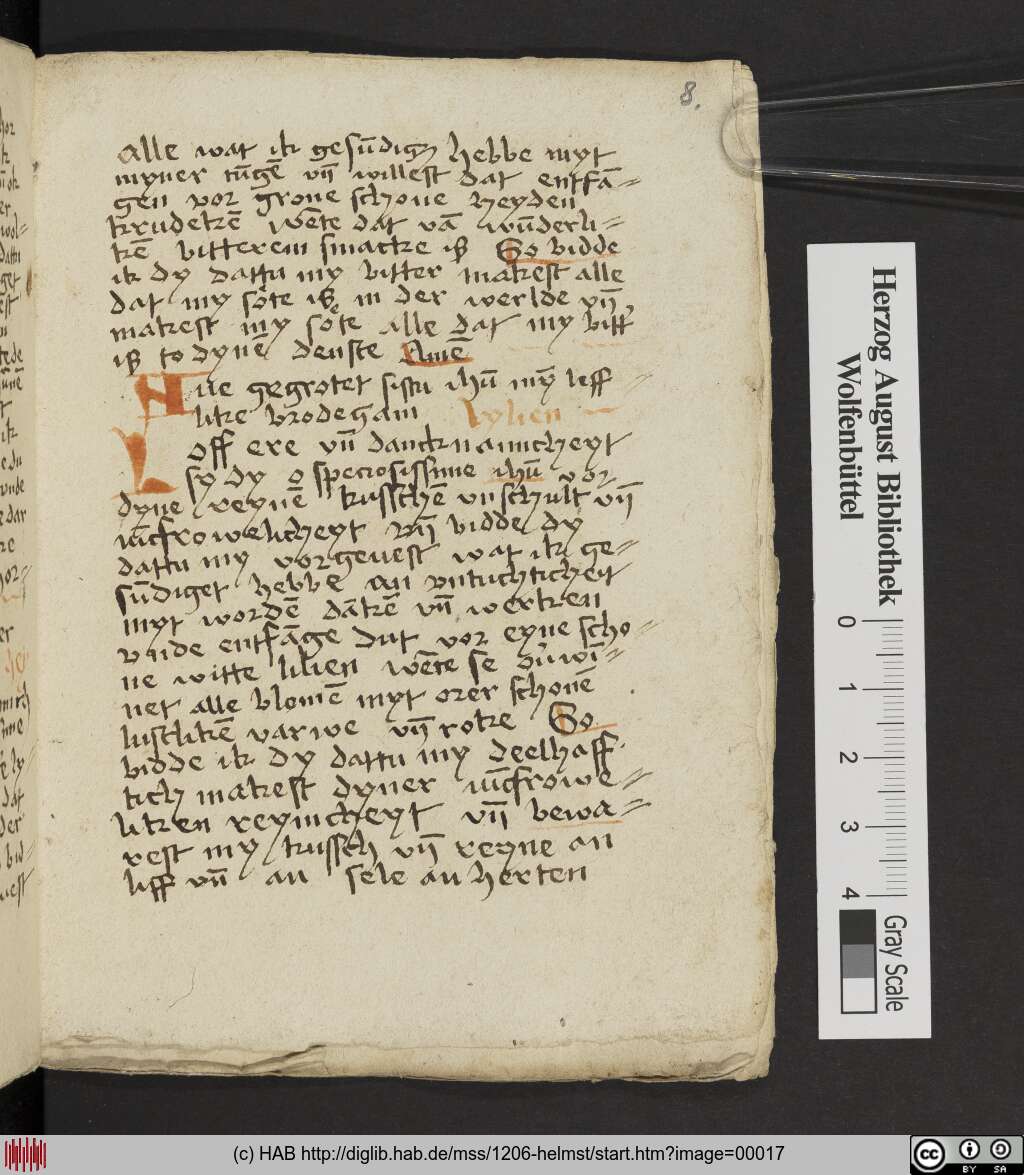 8.
alle wat ik gesu̅dig̅ hebbe myt
myner tu̅ge̅ vn̅ willest dat entfa̅=
gen vor grone schone heyden
krudeke̅ we̅te dat va̅ wu̅derli=
ke̅ bitterem smacke is So bidde
ik dy dattu my bitter makest alle
dat my sote is in der werlde vn̅
makest my sote alle dat my bitt'
is to dyne̅ denste Ame̅
Aue gegrotet sistu ihu̅ my̅ leff
like brodegam lylien
Loff ere vn̅ dancknamicheyt
sy dy o speciosissime ihu̅ vor
dyne reyne̅ kussche̅ vnschult vn̅
iu̅cfrowelicheyt vn̅ bidde dy
dattu my vorgeuest wat ik ge=
su̅diget hebbe an vntuchticheyt
myt worde̅ da̅cke̅ vn̅ wercken
vnde entfa̅ge dut vor eyne scho=
ne witte lilien we̅te se ou'wi̅=
net alle blome̅ myt orer schone̅
lustlike̅ varwe vn̅ roke So
bidde ik dy dattu my deelhaff
tich makest dyner iu̅cfrowe=
liken reynicheyt vn̅ bewa=
rest my kussch vn̅ reyne an
liff vn̅ an sele an herten
Herzog August Bibliothek
Wolfenbüttel
0 1 2 3 4
Gray Scale
(c) HAB http://diglib.hab.de/mss/1206-helmst/start.htm?image=00017
cc BY SA